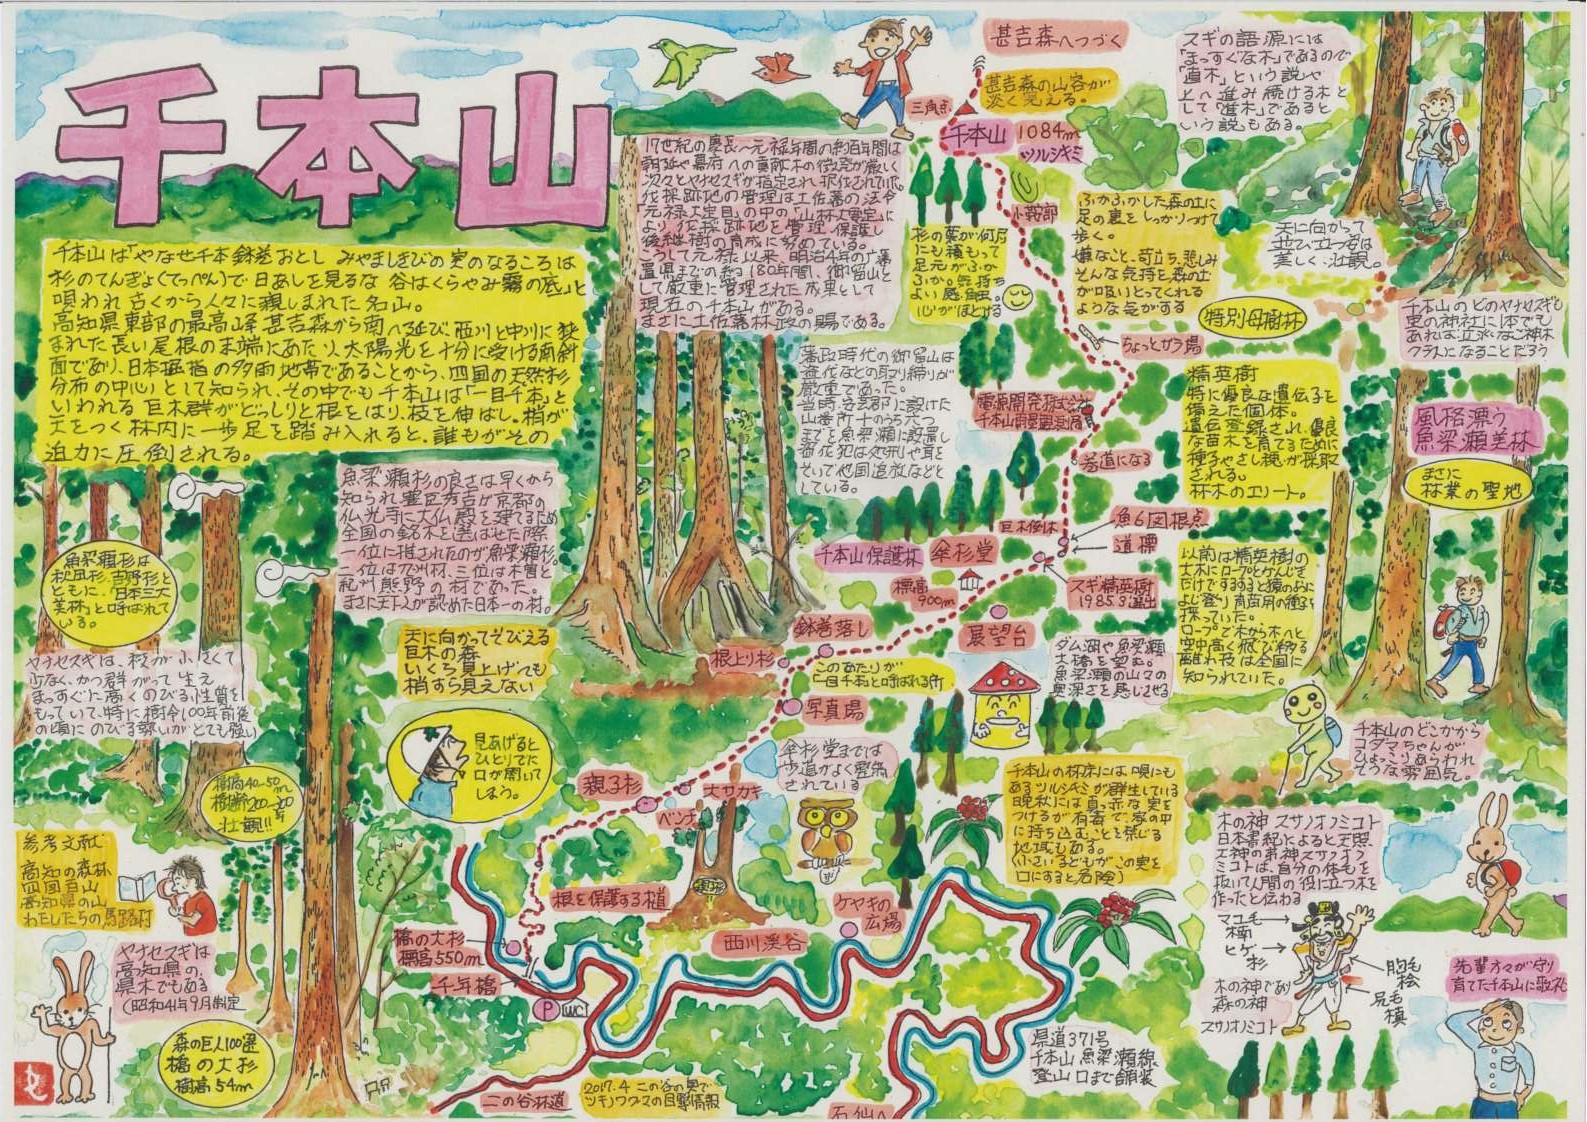 千本山
千本山は「やなせ千本鉢巻おとし みやましきびの実のなるころは
杉のてんぎょ(てっぺん)で日あしを見るな 谷はくらやみ霧の底」と
唄われ 古くから人々に親しまれた名山。
高知県東部の最高峰 甚吉森から南へ延び、西川と中川に狭
まれた長い尾根の末端にあたり、太陽光を十分に受ける南斜
面であり、日本屈指の多雨地帯であることから、四国の天然杉
分布の中心として知られ、その中でも千本山は「一目千本」と
いわれる 巨木群がどっしりと根をはり、枝を伸ばし、梢が
天をつく林内に一歩足を踏み入れると、誰もがその
迫力に圧倒される。
魚梁瀬杉は
秋田杉、吉野杉と
ともに、「日本三大
美林」と呼ばれて
いる。
ヤナセスギは、枝が小さくて
少なく、かつ群がって生え
まっすぐに高くのびる性質を
もっていて、特に樹令100年前後
の頃にのびる勢いがとても強い
樹高40~50m
樹齢200~300年
壮観!!
参考文献
高知の森林
四国百山
高知県の山
わたしたちの馬路村
ヤナセスギは
高知県の
県木でもある
(昭和41年9月制定
森の巨人100選
橋の大杉
樹高54m
魚梁瀬杉の良さは早くから
知られ豊臣秀吉が京都の
仏光寺に大仏殿を建てるため
全国の銘木を選ばせた際
一位に推されたのが魚梁瀬杉。
二位は九州材、三位は木曽と
紀州熊野の材であった。
まさに天下人が認めた日本一の村。
天に向かってそびえる
巨木の森
いくら見上げても
梢すら見えない
見あげると
ひとりでに
口が開いて
しまう。
17世紀の慶長~元禄年間の約百年間は
朝廷や幕府への貢献木の徴発が厳しく
次々とヤナセスギが指定され、択伐されていた。
伐採跡地の管理は土佐藩の法令
「元禄大定目」の中の「山林大要定」に
より 伐採跡地を管理、保護し
後継樹の育成に努めている。
こうして元禄以来、明治4年の「廃藩
置県までの約180年間、御留山と
して厳重に管理された成果として
現在の千本山がある。
まさに土佐藩林政の賜である。
藩政時代の御留山は
盗伐などの取り締りが
厳重であった。
当時、安芸郡に設けた
山番所十のうち六つ
までを魚梁瀬に設置し
盗伐犯は処刑や耳を
そいで他国追放などと
している。
甚吉森へつづく
甚吉森の山容が
淡く見える。
三角点
千本山 1084m
ツルシキミ
小鞍部
杉の葉が何層
にも積もって
足元がふか
ふか。気持ち
よい感触。
心がほどける
ふかふかした森の土に
足の裏をしっかりつけて
歩く。
嫌なこと、苛立ち、悲しみ
そんな気持を森の土
が吸いとってくれる
ような気がする
スギの語源には
「まっすぐな木」であるので
「直木」という説や
上へ進み続ける木と
して「進木」であると
いう説もある。
天に向かって
並び立つ姿は
美しく、壮観。
特別母樹林
千本山のどのヤナセスギも
里の神社に1本でも
あれば立派なご神木
クラスになることだろう
ちょっとガラ場
電源開発株式会社
千本山雨量観測局
若道になる
精英樹
特に優良な遺伝子を
備えた個体。
遺伝登録され、優良
な苗木を育てるために
種子やさし穂が採取
される。
林木のエリート。
風格漂う
魚梁瀬美林
まさに
林業の聖地
以前は精英樹の
大木にロープとかんじき
だけでするすると猿のように
よじ登り育苗用の種子を
採っていた。
ロープで木から木へと
空中高く飛び移る
離れ技は全国に
知られていた。
魚6図根点
道標
巨木倒体
千本山保護林
傘杉堂
標高
900m
スギ精英樹
1985.3選出
鉢巻落し
展望台
根上り杉
このあたりが
「一目千本」と呼ばれる所
写真場
ダム湖や魚梁瀬
大橋を望む。
魚梁瀬の山々の
奥深さを感じさせる
傘杉堂までは
歩道がよく整備
されている
親子杉
大サカキ
ベンチ
根を保護する道
橋の大杉
標高550m
千年橋
P
WC
西川渓谷
ケヤキの
広場
千本山の林床には、唄にも
あるツルシキミが群生している
晩秋には真っ赤な実を
つけるが 有毒で、家の中
に持ち込むことを禁じる
地域もある。
(小さい子どもがこの実を
口にすると危険)
千本山のどこかから
コダマちゃんが
ひょっこりあらわれ
そうな雰囲気。
木の神 スサノオノミコト
日本書紀によると天照
大神の弟神スサノオノ
ミコトは、自分の体毛を
抜いて人間の役に立つ木を
作ったと伝わる
マユ毛→
楠
ヒゲ→
杉
胸毛
桧
尻毛
槙
木の神であり
森の神
スサノオノミコト
先輩方々が守り
育てた千本山に敬礼
県道371号
千本山魚梁瀬線
登山口まで舗装
二の谷林道
2017.4 二の谷の奥で
ツキノワグマの目撃情報
石仙へ